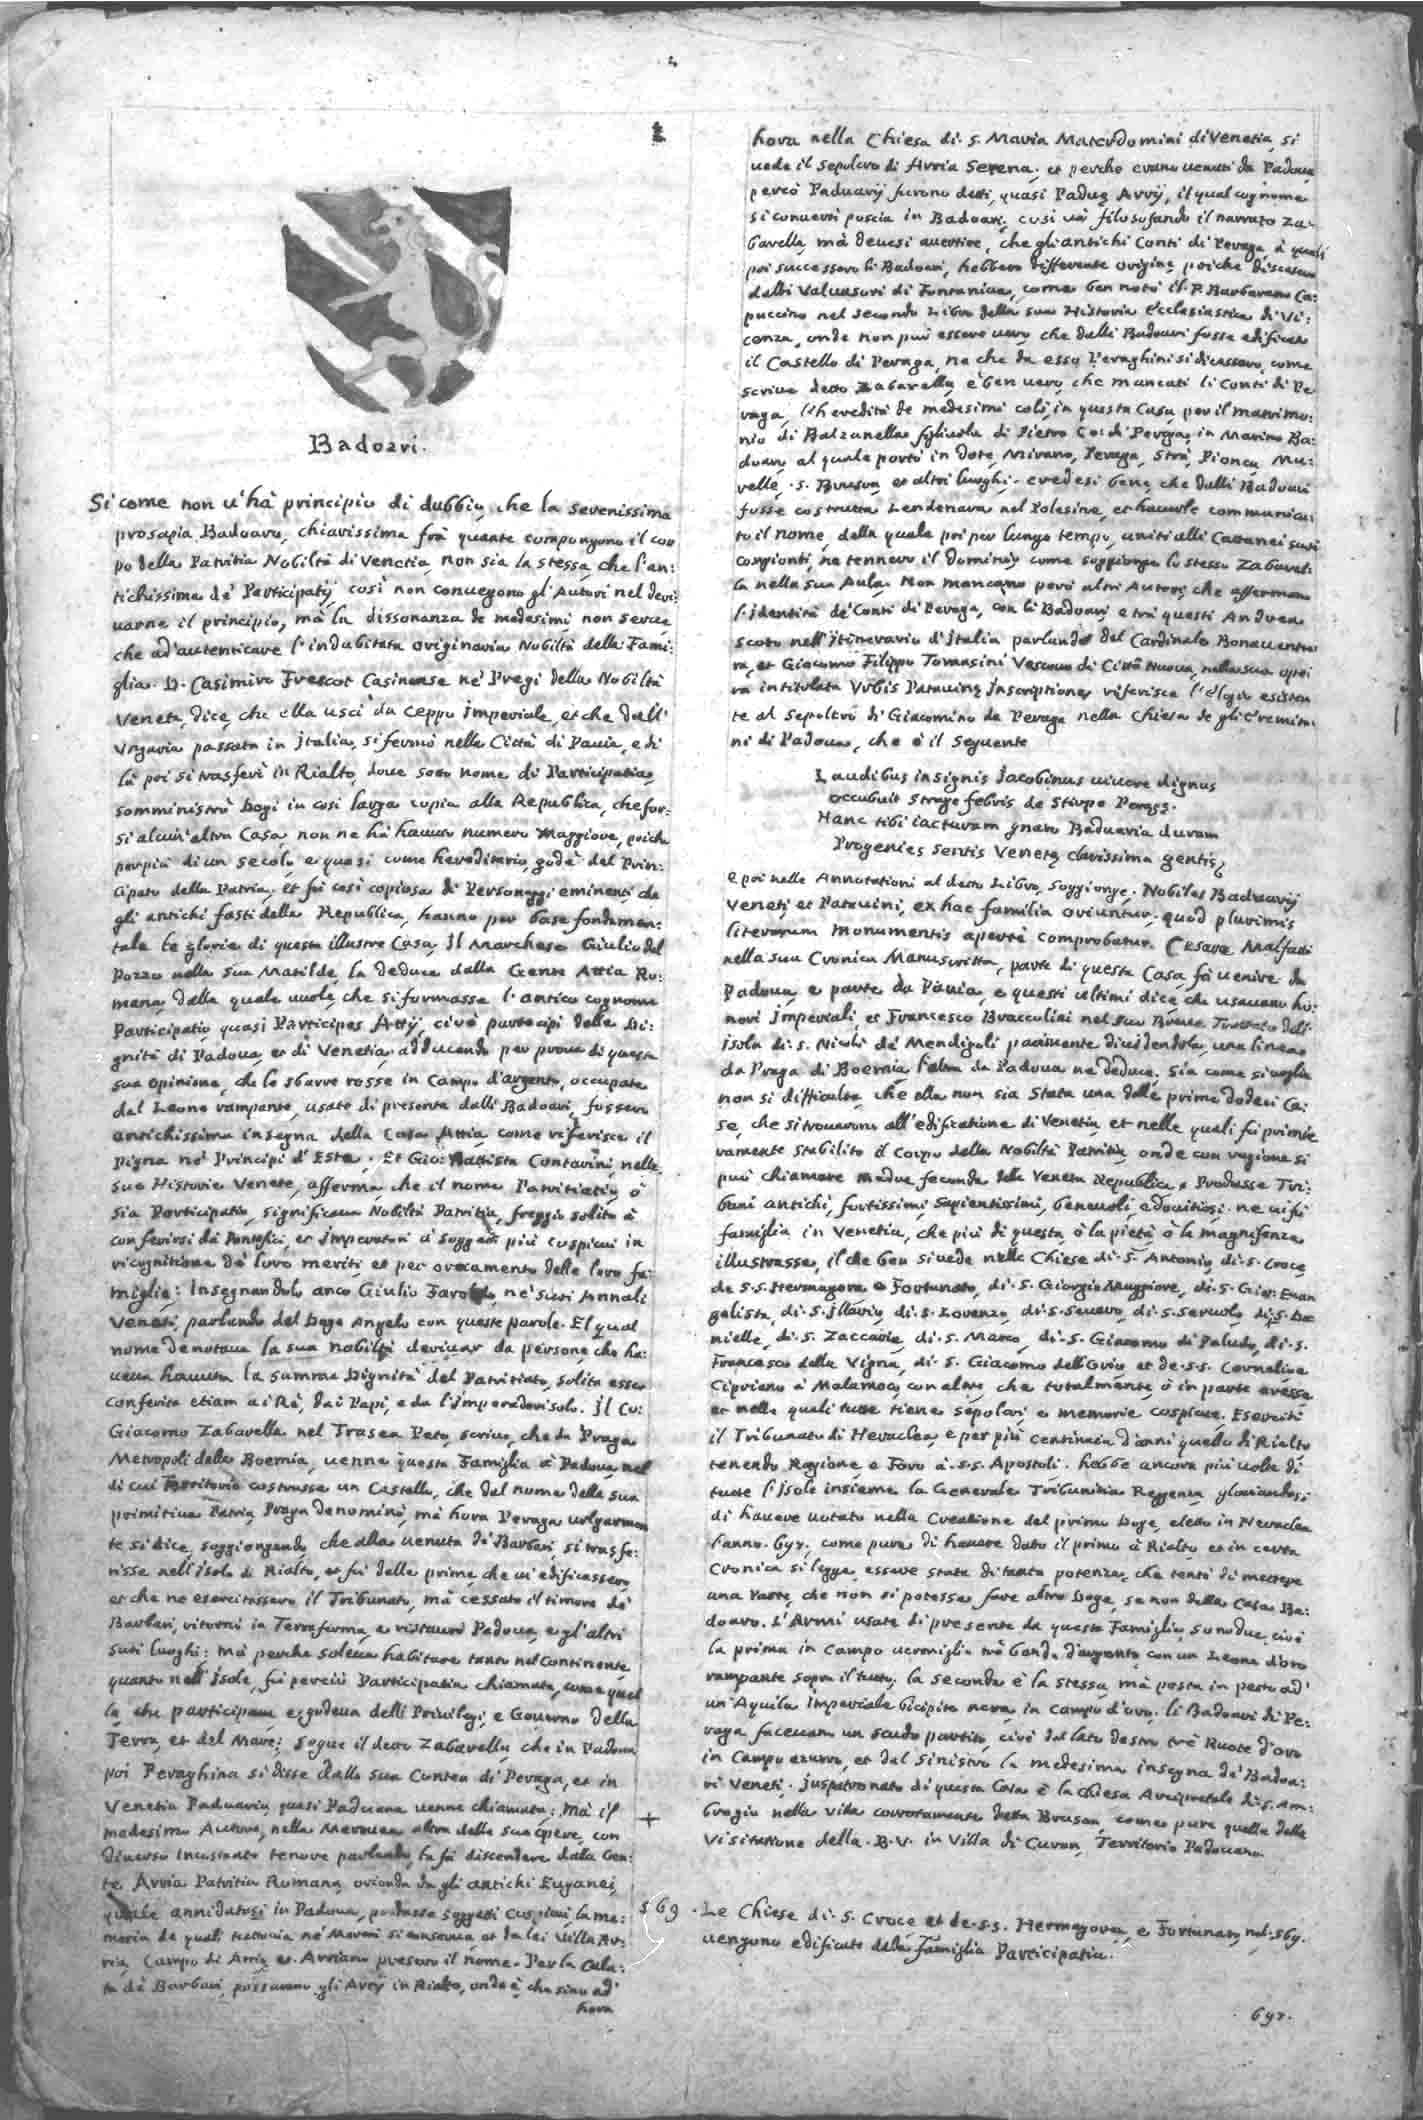 Badoari.
Si come non v'hà principio di dubbio, che la Serenissima
prosapia Badoara, chiarissima frà quante compongono il cor
po della Patritia Nobiltà di Venetia, non sia la stessa, che l'an:
tichissima de' Participatij così non convegono gl'Autori nel deri:
varne il principio, mà la dissonanza de medesimi non serve,
che ad'autenticare l'indubitata originaria Nobiltà della Fami:
glia. D. Casimiro Frescot Casinense ne' Pregi della Nobiltà
Veneta, dice, che ella uscì da Ceppo Imperiale, et che dall'
Ungaria passata in Italia, si fermò nella Città di Pavia, e di
là poi si trasferì in Rialto, dove sotto nome di Participatia,
somministrò Dogi in così larga copia alla Republica, che for:
si alcun'altra Casa non ne hà havuto numero maggiore, poiche
per più di un secolo, e quasi come hereditario, godè del Prin:
cipato della Patria; et fù così copiosa di Personaggi eminenti, che
gli antichi fasti della Republica, hanno per base fondamen:
tale le glorie di questa illustre Casa. Il Marchese Giulio del
Pozzo nella sua Matilde, la deduce dalla Gente Attia Ro:
mana, dalla quale vuole, che si formasse l'antico cognome
Participatio, quasi Participes Attij, cioè partecipi delle Di:
gnità di Padova, et di Venetia, adducendo per prova di questa
sua opinione, che le sbarre rosse in Campo d'argento, occupate
dal Leone rampante, usato di presente dalli Badoari, fossero
antichissima insegna della Casa Attia, come riferisce il
Pigna ne' Principi d'Este. Et Gio: Battista Contarini, nelle
sue Historie Venete, afferma, che il nome Patritiatio, ò
sia Participatio, significava Nobiltà Patritia, freggio solito à
conferirsi dà Pontefici, et Imperatori à soggetti più cospicui in
ricognitione de' loro meriti et per ornamento delle loro fa:
miglie: Insegnandolo anco Giulio Faroldo, ne' suoi Annali
Veneti, parlando del Doge Angelo con queste parole. El qual
nome denotava la sua nobiltà derivar da persone, che ha:
veva havuta la summa Dignità del Patritiato, solita esser
conferita etiam a i Rè, da i Papi, e da l'Imperadori solo. Il Co:
Giacomo Zabarella nel Trasea Peto, scrive, che da Praga
Metropoli della Boemia, venne questa Famiglia à Padova, nel
di cui Territorio costrusse un Castello, che del nome della sua
primitiva Patria, Praga denominò, mà hora Peraga volgarmen
te si dice, soggiongendo che alla venuta de' Barbari, si trasfe:
risse nell'Isola di Rialto, et fù delle prime, che vi edificassero,
et che ne esercitassero il Tribunato, mà cessato il timore de'
Barbari, ritornò in Terraferma, e ristaurò Padova, e gl'altri
suoi luoghi; mà perche soleva habitare tanto nel Continente,
quanto nell'Isole, fù perciò Participatia chiamata, come quel
la che participava e godeva delli Privilegi, e Governo della
Terra, et del Mare; segue il detto Zabarella, che in Padova
poi Peraghina si disse dalla sua Contea di Peraga, et in
Venetia Paduaria, quasi Paduana venne chiamata; Mà il
medesimo Autore, nella Merouea altra delle sue opere, con
diverso tenore parlando, la fà discendere dalla Gen:
te Arria Patritia Romana, orionda da gli antichi Euganei,
quale annidatasi in Padova, produsse soggetti cospicui, la me:
moria de quali tuttavia ne' Marmi si conserva et da lei Villa Ar:
ria, Campo di Arria et Arriano presero il nome. Per la Cala:
ta de' Barbari, passarono gli Arrij in Rialto, onde è, che sino ad'
hora
hora nella Chiesa di S. Maria Mater Domini di Venetia, si
vede il sepolcro di Arria Serena; et perche erano venuti da Padova
perciò Paduarij furono detti, quasi Padua Arrij, il qual cognome
si convertì poscia in Badoari; così và filosofando il narrato Za:
barella, mà devesi avertire, che gli antichi Conti di Peraga, à quali
poi successero li Badoari, hebbero differente origine, poiche discesero
dalli Valvasori di Fontaniva, come ben notò il P. Barbarano Ca:
puccino nel secondo Libro della sua Historia Ecclesiastica di Vi:
cenza, onde non può essere vero che dalli Badoari fosse edificato
il Castello di Peraga, ne che da esso Peraghini si dicessero, come
scrive detto Zabarella, è ben vero, che mancati li Conti di Pe
raga, l'heredità de medesimi colò in questa Casa, per il matrimo:
nio di Balzanella figliuola di Pietro Co: di Peraga, in Marino Ba:
doaro, al quale portò in dote, Mirano, Peraga, Strà, Pionca, Mu:
relle, S. Bruson, et altri luoghi. credesi bene, che dalli Badoari
fusse costrutta Lendenara nel Polesine, et havutole communica:
to il nome, della quale poi per lungo tempo, uniti alli Cattanei suoi
Congionti, ne tennero il dominio, come soggionge lo stesso Zabarel:
la nella sua Aula. Non mancano però altri Autori, che affermano
l'identità de' Conti di Peraga, con li Badoari, e trà questi Andrea
Scoto nell'Itinerario d'Italia parlando del Cardinale Bonaventu
ra, et Giacomo Filippo Tomasini Vescovo di Città Nuova, nella sua ope:
ra intitulata Urbis Patavinę Inscriptiones riferisce l'elogio esisten
te al sepolcro di Giacomino da Peraga nella Chiesa de gli Eremita:
ni di Padova, che è il seguente
Laudibus insignis Jacobinus vivere dignus
Occubuit strage febris de stirpe Peragę.
Hanc tibi iacturam gnaro Baduaria duram
Progenies sentis Venetę clarissima gentis,
e poi nelle Annotationi al detto Libro, soggionge. Nobiles Baduarij
Veneti et Patavini, ex hac familia oriuntur, quod plurimis
literarum monumentis apertè comprobatur. Cesare Malfatti
nella sua Cronica Manuscritta, parte di questa Casa, fà venire da
Padova, e parte da Pavia, e questi ultimi dice, che usavano ho:
nori Imperiali, et Francesco Bracculini nel suo Breve Trattato dell'
Isola di S. Nicolò de' Mendigoli parimente dividendola, una linea
da Praga di Boemia, l'altra da Padova ne deduce. Sia come si voglia
non si difficulta, che ella non sia stata una delle prime dodeci Ca:
se, che si trovarono all'edificatione di Venetia, et nelle quali fù primie
ramente stabilito il Corpo della Nobiltà Patritia, onde con ragione si
può chiamare madre feconda della Veneta Republica. Produsse Tri:
buni antichi, fortissimi, sapientissimi, benevoli, e dovitiosi; ne vi fù
famiglia in Venetia, che più di questa, ò la pietà, ò la magnificenza
illustrasse, il che ben si vede nelle Chiese di S. Antonio, di S. Croce,
de S.S. Hermagora e Fortunato, di S. Giorgio Maggiore, di S. Gio: Evan
gelista, di S. Illario, di S. Lorenzo, di S. Severo, di S. Servolo, di S. Da
nielle, di S. Zaccaria, di S. Marco, di S. Giacomo di Paludo, di S.
Francesco della Vigna, di S. Giacomo dell'Orio, et de S.S. Cornelio, e
Cipriano à Malamoco, con altre, che totalmente, ò in parte eresse,
et nelle quali tutte tiene sepolcri, e memorie cospicue. Esercitò
il Tribunato di Heraclea, e per più centinaia d'anni quello di Rialto
tenendo Ragione, e Foro à S.S. Apostoli. hebbe ancora più volte di
tutte l'Isole insieme la Generale Tribunitia Reggenza, gloriandosi
di havere votato nella Creatione del primo Doge, eletto in Heraclea
l'anno 697, come pure di havere dato il primo à Rialto, et in certa
Cronica si legge, essere stata di tanta potenza, che tentò di mettere
una Parte, che non si potesse fare altro Doge, se non della Casa Ba:
doara. L'Armi usate di presente da questa Famiglia, sono due, cioè
la prima in Campo vermiglio trè bande d'argento, con un Leone d'oro
rampante sopra il tutto. la seconda è la stessa, mà posta in petto ad'
un'Aquila Imperiale bicipite nera, in Campo d'oro. li Badoari di Pe:
raga facevan un scudo partito, cioè dal lato destro trè Ruote d'oro
in Campo azurro, et dal sinistro la medesima insegna de' Badoa:
ri Veneti. Juspatronato di questa Casa è la Chiesa Arcipretale di S. Am:
brogio nella villa corrotamente detta Bruson, come pure quella della
Visitatione della B.V. in Villa di Curon, Territorio Padovano.
569 . Le Chiese di S. Croce et de S.S. Hermagora, e Fortunato, nel 569.
vengono edificate dalla Famiglia Participatia.
697.